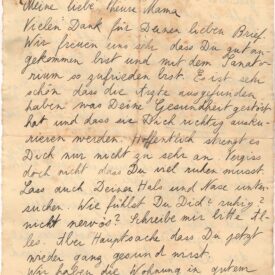 Meine liebe, teure Mama
Vielen Dank für Deinen lieben Brief.
Wir freuen uns sehr dass Du gut an-
gekommen bist und mit dem Sanato-
rium so zufrieden bist. Es ist sehr
schön dass die Ärzte ausgefunden
haben was Deine Gesundheit gestört
hat und dass sie Dich richtig ausku-
rieren werden. Hoffentlich strengt es
Dich nur nicht zu sehr an. Vergiss
doch nicht dass Du viel ruhen musst.
Lass auch Deinen Hals und Nase unter-
suchen. Wie fühlst Du Dich? ruhig?
nicht nervös? Schreibe mir bitte Al-
les. Aber Hauptsache dass Du jetzt
wieder ganz gesund wirst.
Wir haben die Wohnung in gutem